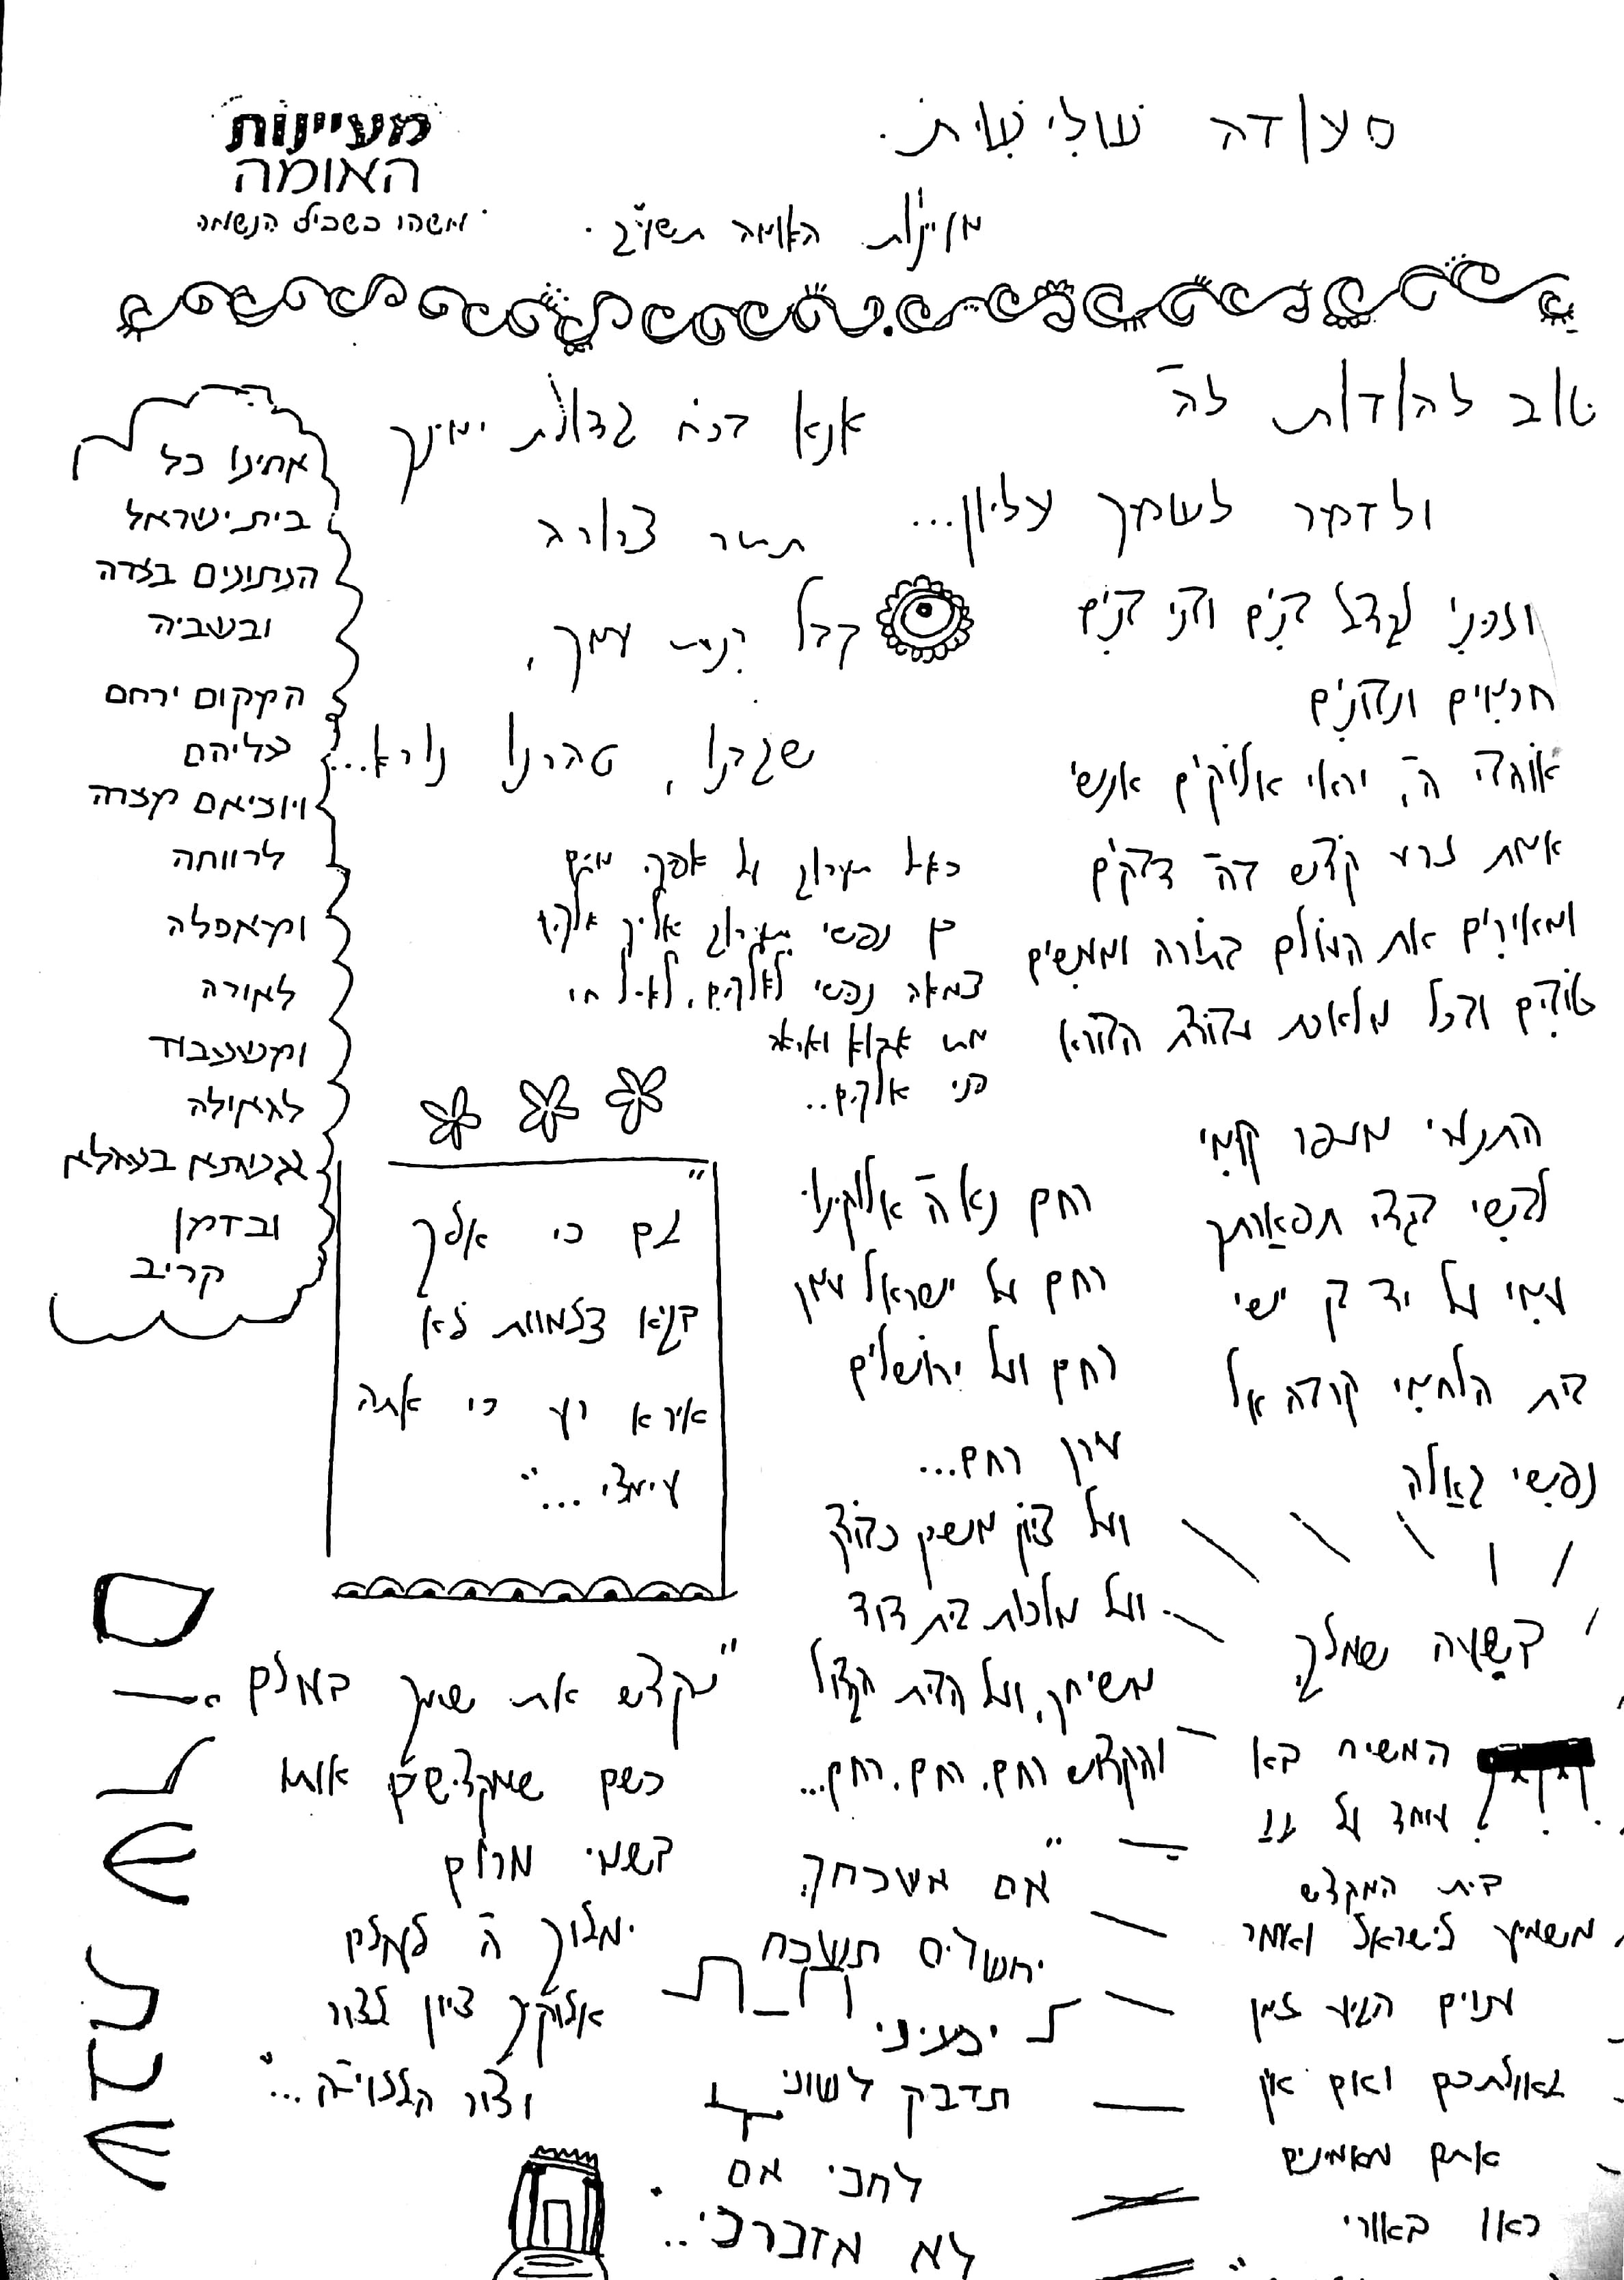 סעודה שלישית.
מעיינות האומה תשע"ב.
מעיינות
האומה
משהו בשביל הנשמה
טוב להודות לה'
ולזמר לשמך עליון...
וזכני לגדל בנים ובני בנים
חכמים ונבונים
אוהבי ה', יראי אלוקים אנשי
אמת זרע קודש בה' דבקים
ומאירים את העולם בתורה ומעשים
טובים ובכל מלאכת עבודת הבורא
התנערי מעפר קומי
לבשי בגדי תפארתך
עמי על יד בן ישי
בית הלחמי קרבה אל
נפשי גאלה
בשעה שמלך
המשיח בא
עומד על גג
בית המקדש
משמיע לישראל ואומר
ענוים הגיע זמן
גאולתכם ואם אין
אתם מאמינים
ראו באורי
אנא בכח גדולת ימינך
תתיר צרורה
קבל רינת עמך,
שגבנו, טהרנו נורא...
כאיל תערוג על אפיקי מים
כן נפשי תערוג אליך אלקים
צמאה נפשי לאלקים, לאל חי
מתי אבוא ואראה
פני אלקים..
רחם נא ה' אלוקינו
רחם על ישראל עמך
רחם ועל ירושלים
עירך רחם...
ועל ציון משכן כבודך
ועל מלכות בית דוד
משיחך, ועל הבית הגדול
והקדוש רחם, רחם, רחם...
"אם אשכחך
ירושלים תשכח
ימיני
תדבק לשוני
לחכי אם
לא אזכרכי...
אחינו כל
בית ישראל
הנתונים בצרה
ובשביה
המקום ירחם
עליהם
ויוציאם מצרה
לרווחה
ומאפלה
לאורה
ומשעבוד
לגאולה
בעגלא
ובזמן
קריב
"גם כי אלך
בגיא צלמוות לא
אירא רע כי אתה
עימדי..."
"נקדש את שמך בעולם
כשם שמקדישים אותו
בשמי מרום
ימלוך ה' לעולם
אלוקיך ציון לדור
ודור הללויה..."